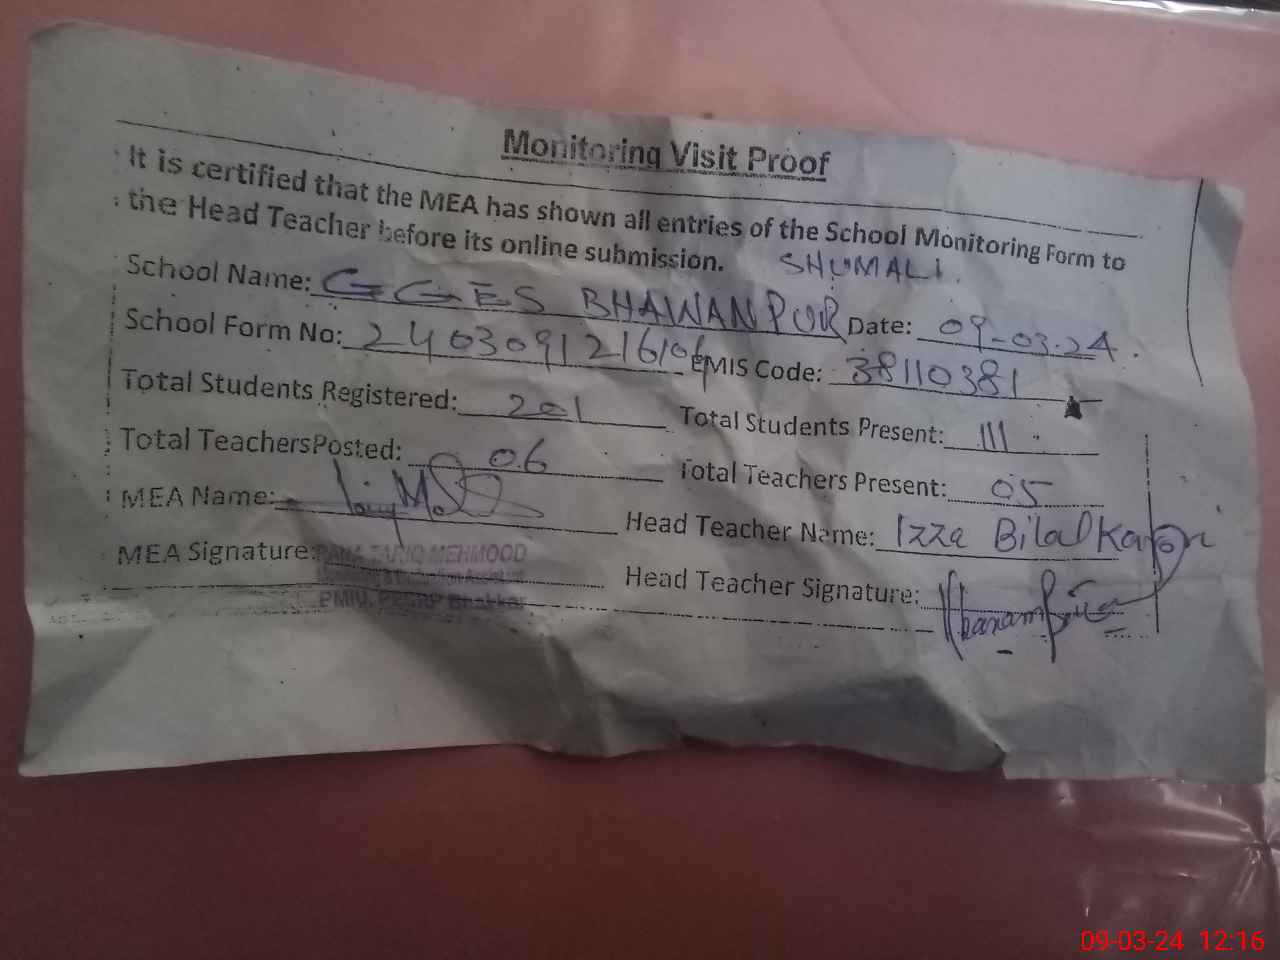 Monitoring Visit Proof
It is certified that the MEA has shown all entries of the School Monitoring Form to
the Head Teacher before its online submission.
SHUMALI.
School Name: GGES BHAWANPUR Date: 09-03-24.
School Form No: 240309121610 EMIS Code: 38110381
Total Students Registered: 201 Total Students Present: 111
Total TeachersPosted: 06 Total Teachers Present: 05
MEA Name: Head Teacher Name: Izza Bilal
MEA Signature: RANA TARIQ MEHMOOD Head Teacher Signature:
PMIU, PESRP Bhakkar
09-03-24 12:16